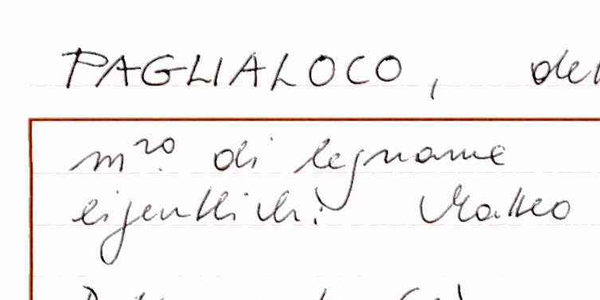 PAGLIALOCO, de
m.ro di legname
eigentlich: Matteo